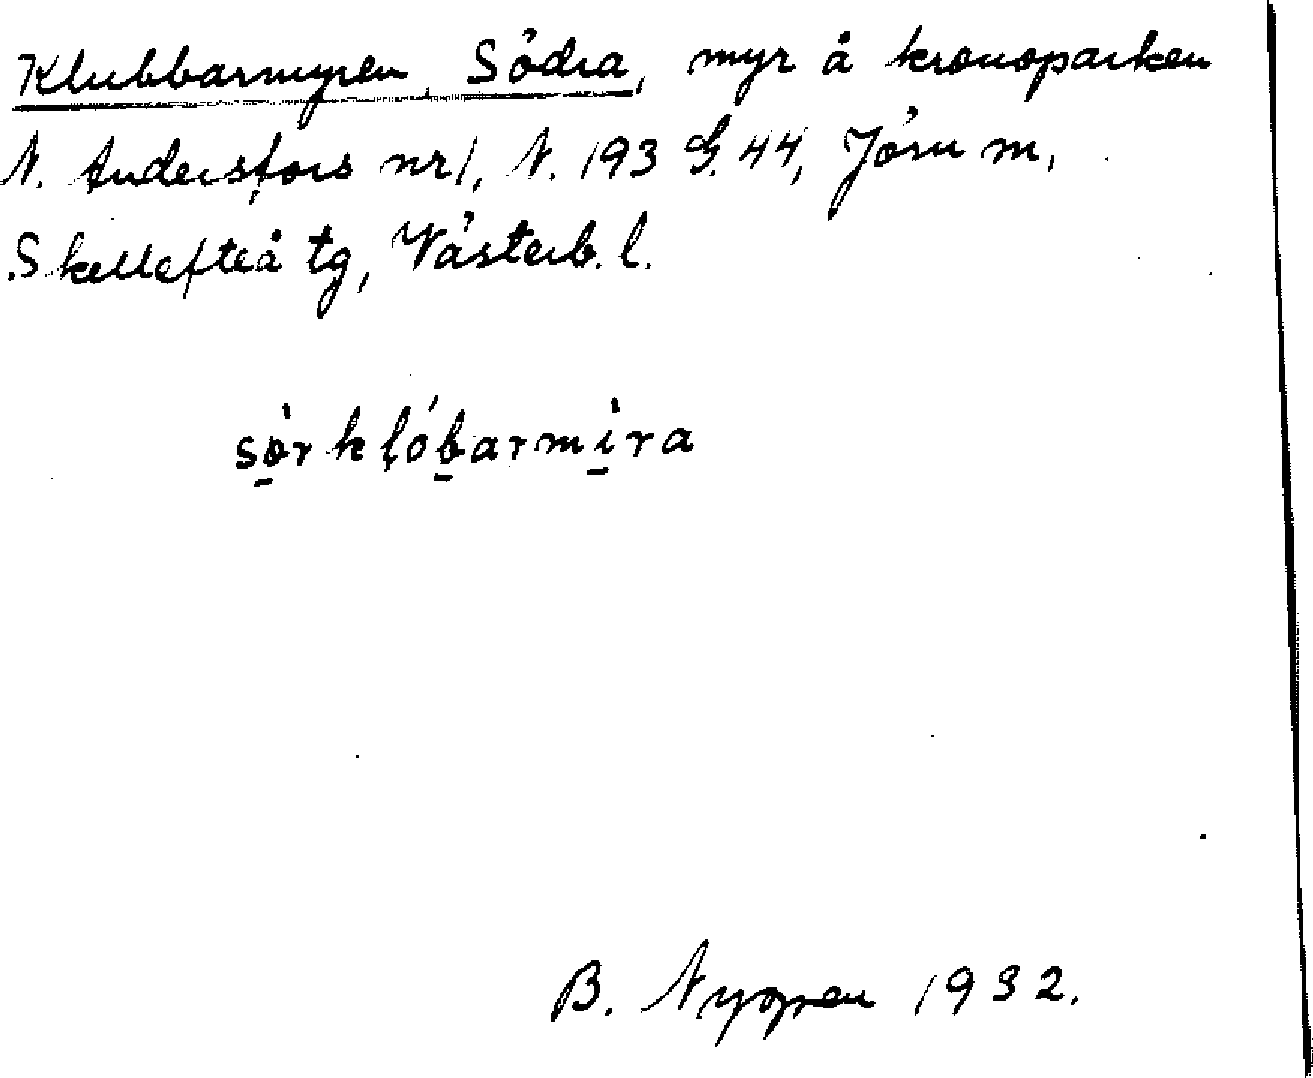 Klubbarmyren, Södra, myr å kronoparken
N. Andersfors nr 1, N. 193 G. 44, Jörn m,
Skellefteå tg, Västerb. l.
sö̀rkḷóbarmìra
B. Nygren 1932.